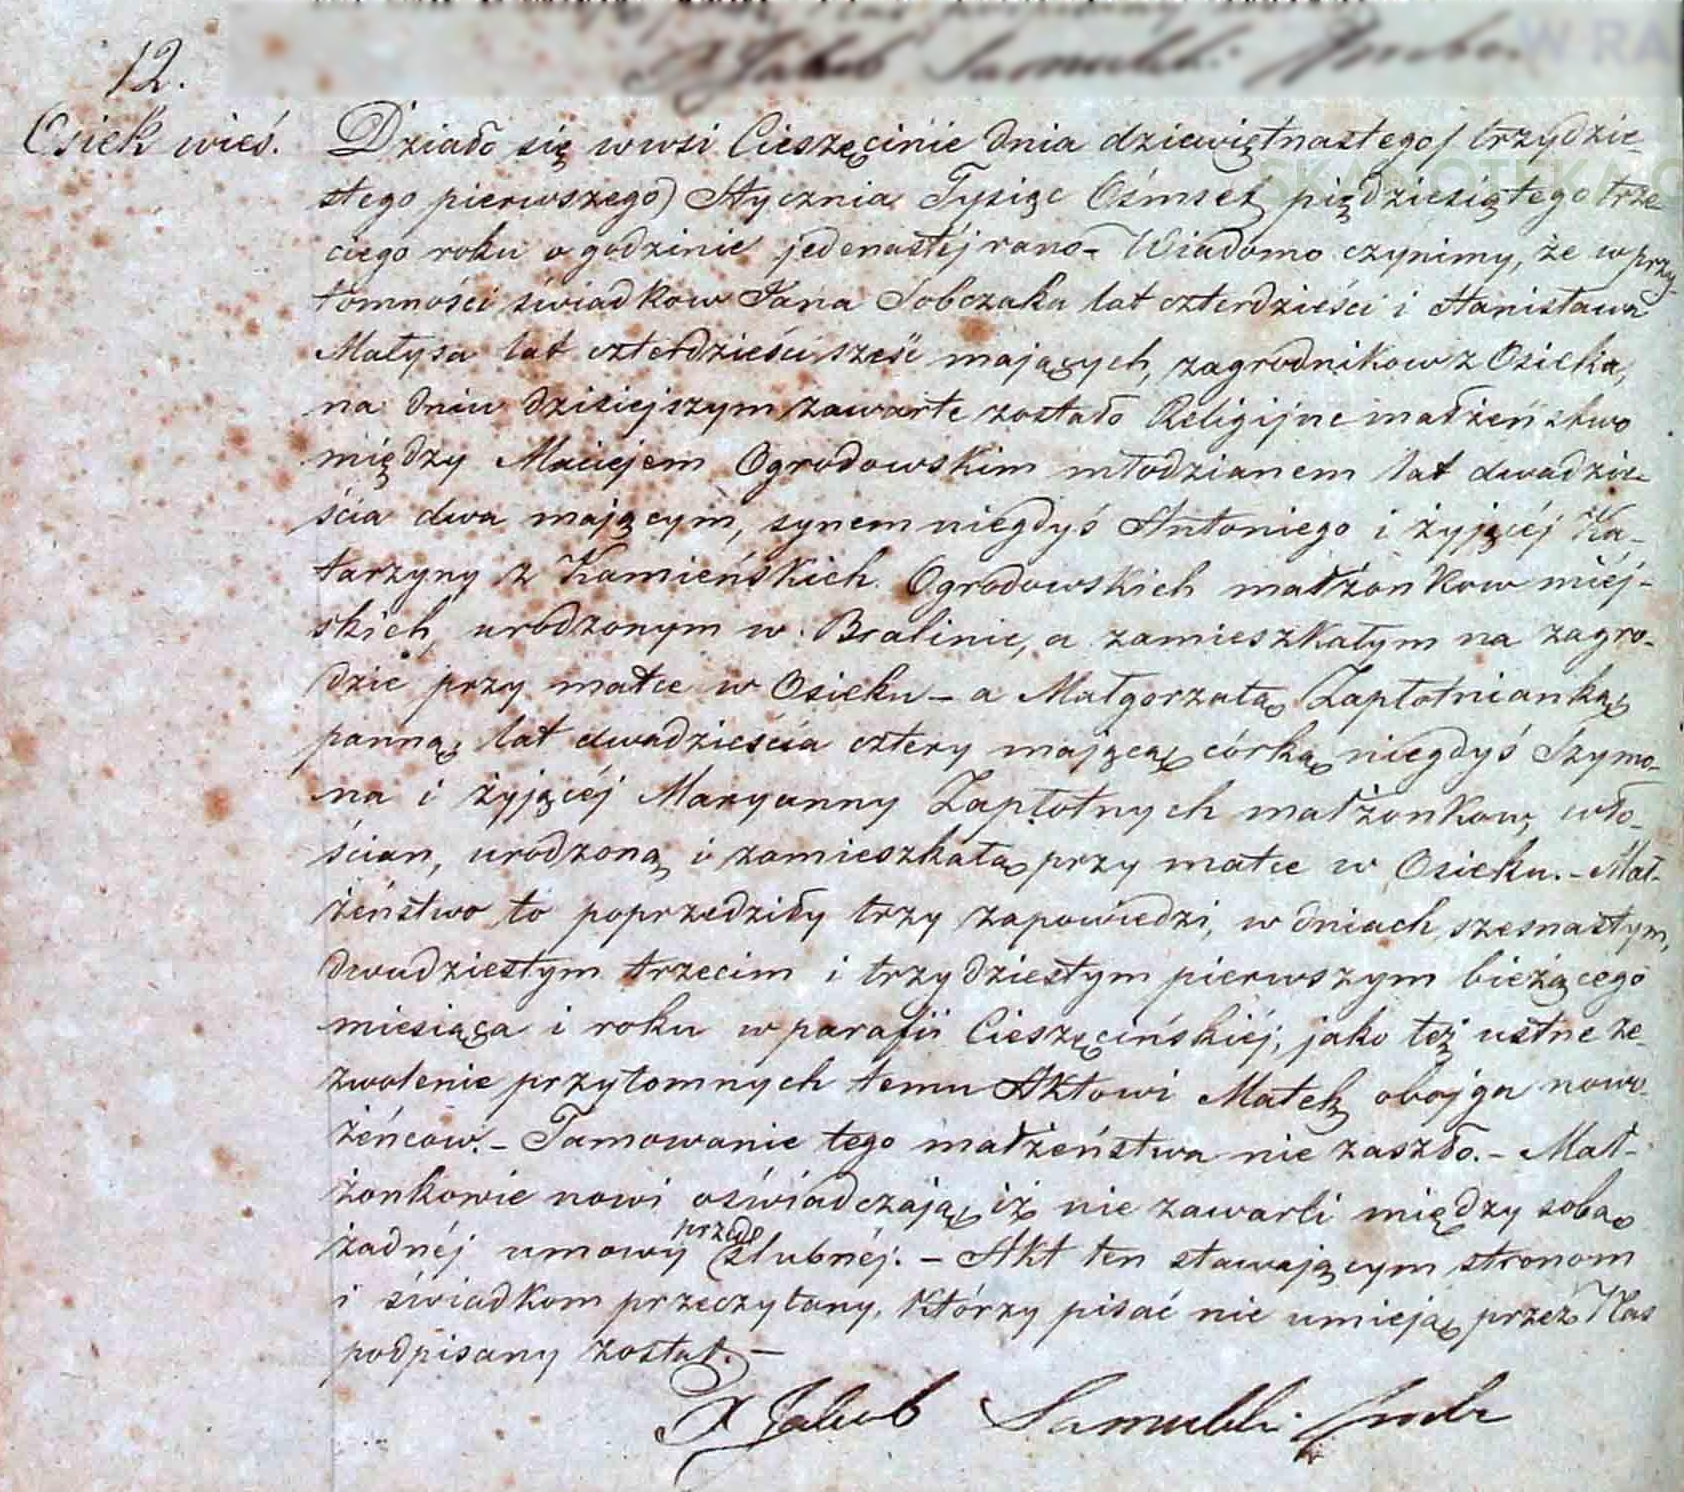 12.
Osiek wieś.
Działo się w wsi Cieszęcinie dnia dziewiętnastego / trzydzie-
stego pierwszego) Stycznia Tysiąc Ośmset piędziesiątego trze
ciego roku o godzinie jedenastéj rano - Wiadomo czynimy, że w przy-
tomności świadkow Jana Sobczaka lat czterdzieści i Stanisława
Małysa lat czterdzieści sześć mających, zagrodnikow z Osieka,
na dniu dzisiejszym zawarte zostało Religijne małżeństwo
między Maciejem Ogrodowskim młodzianem lat dwadzie-
ścia dwa mającym, synem niegdyś Antoniego i żyjącéj Ka-
tarzyny z Kamieńskich Ogrodowskich małżonkow miéj-
skich, urodzonym w Bralinie, a zamieszkałym na zagro-
dzie przy matce w Osieku - a Małgorzatą Zapłotnianką
panną, lat dwadzieścia cztery mającą córką niegdyś Szymo-
na i żyjącéj Maryanny Zapłotnych małżonkow, wło-
ścian, urodzoną i zamieszkałą przy matce w Osieku. - Mał-
żeństwo to poprzedziły trzy zapowiedzi, w dniach szesnastym,
dwudziestym trzecim i trzydziestym pierwszym bieżącego
miesiąca i roku w parafii Cieszęcińskiéj, jako też ustne ze-
zwolenie przytomnych temu Aktowi Matek obojga nowo-
żéńcow. - Tamowanie tego małżeństwa nie zaszło. - Mał-
żonkowie nowi oświadczają, iż nie zawarli między sobą
żadnéj umowy przed ślubnéj. - Akt ten stawającym stronom
i świadkom przeczytany, którzy pisać nie umieją przez Nas
podpisany został. -
X Jakub